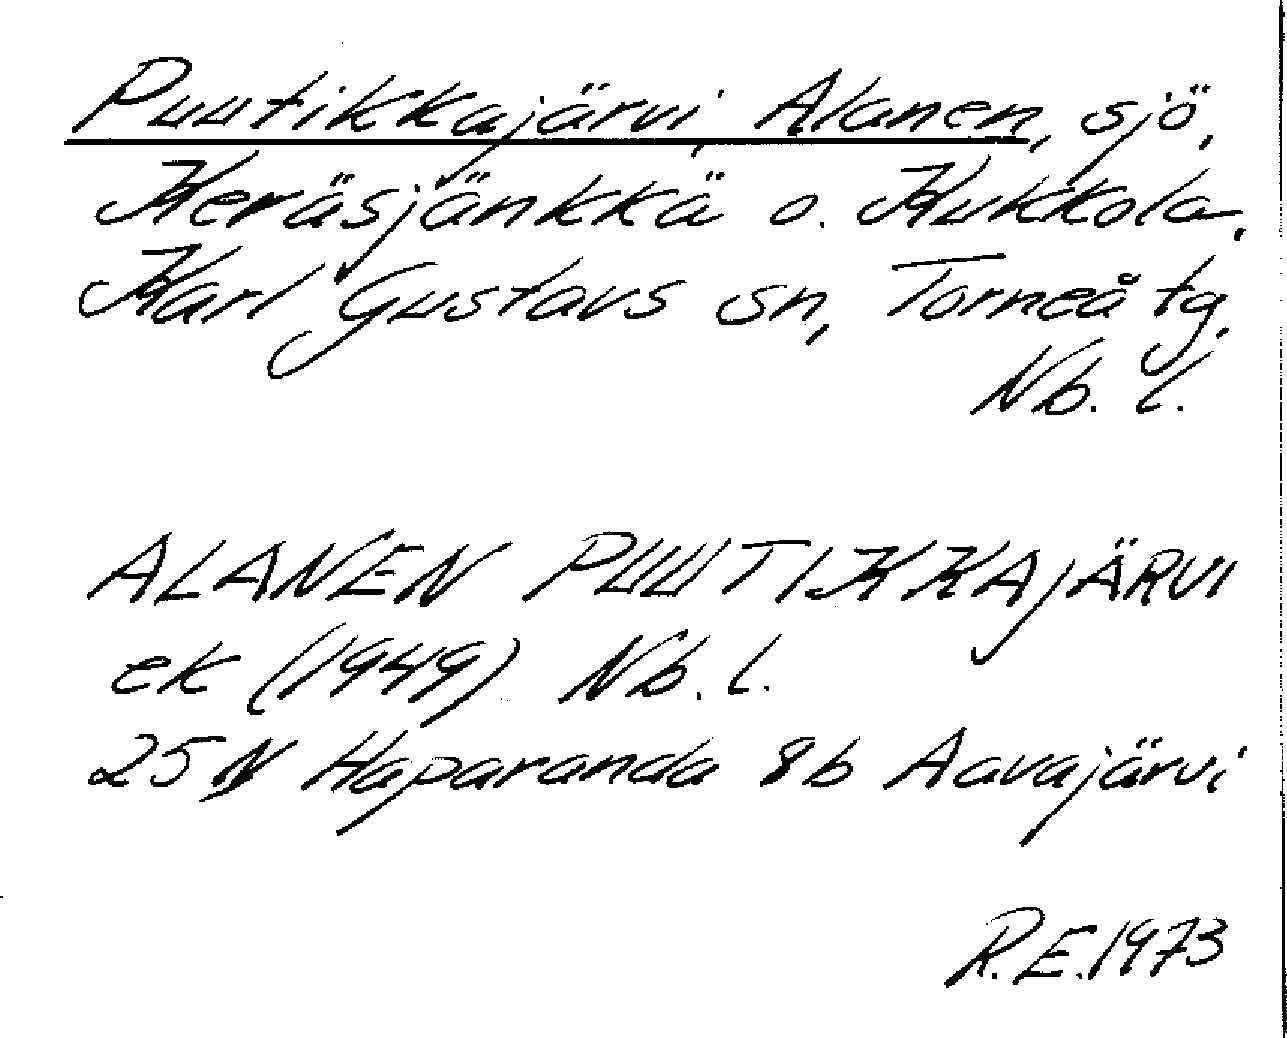 Puutikkajärvi, Alanen, sjö,
Keräsjänkkä o. Kukkola,
Karl Gustavs sn, Torneå tg,
Nb. l.
ALANEN PUUTIKKAJÄRVI
ek (1949) Nb. l.
25N Haparanda 8b Aavajärvi
R.E. 1973